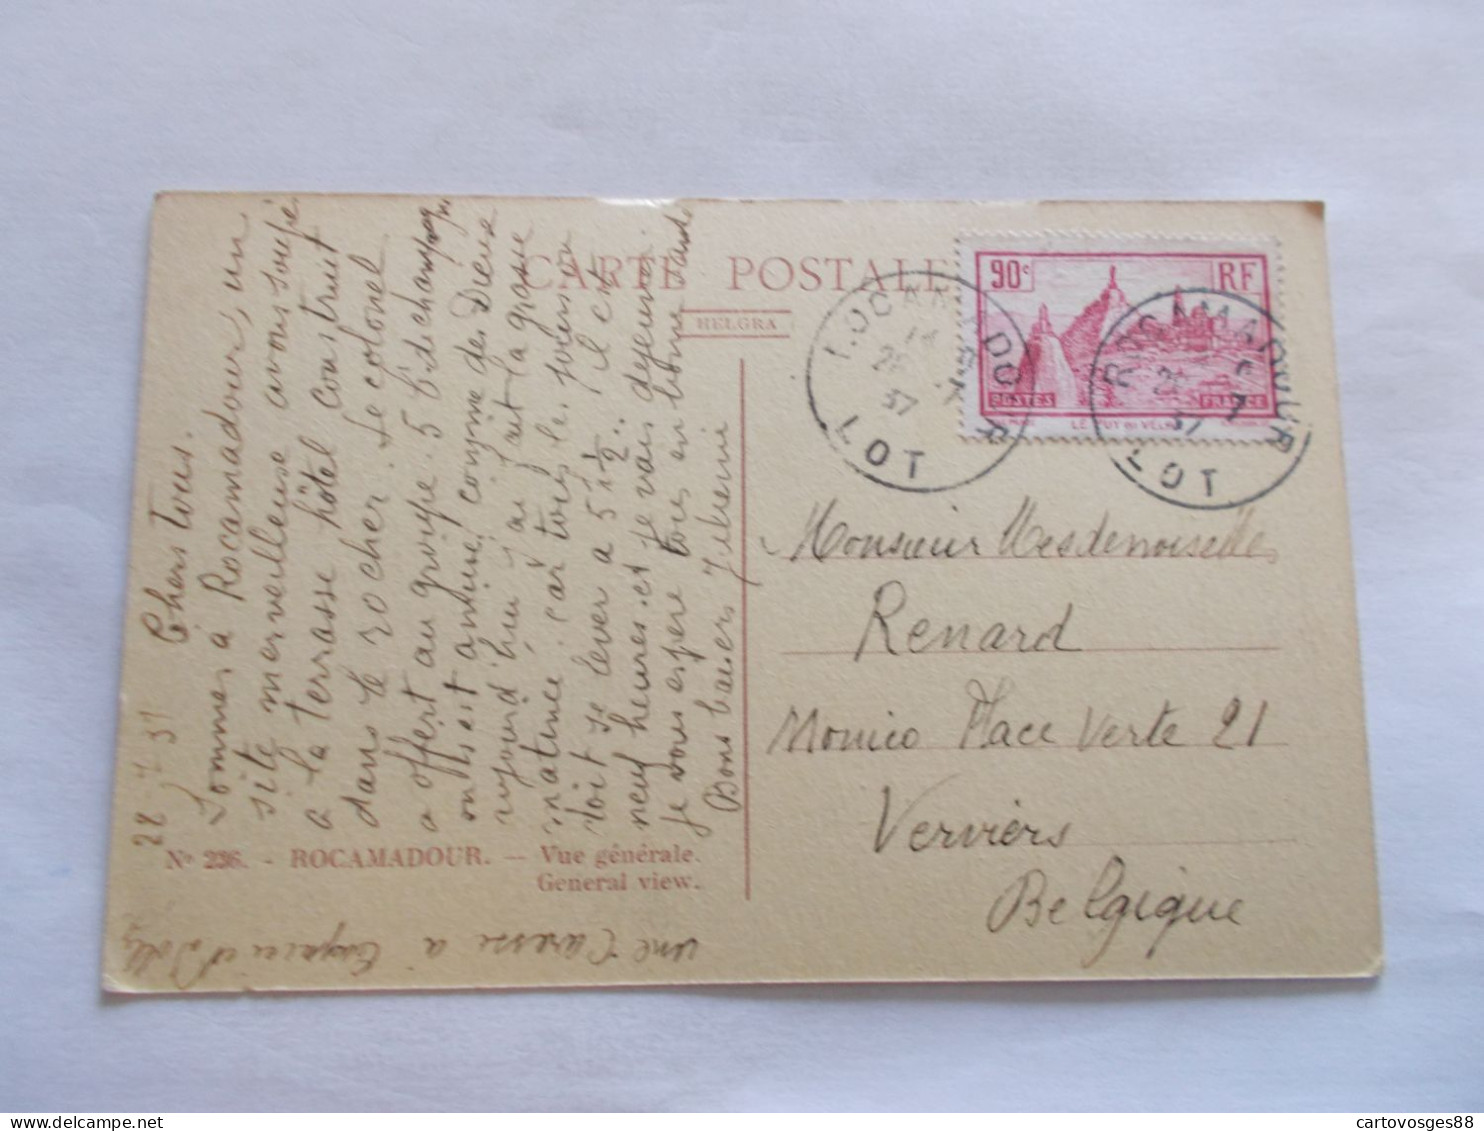 CARTE POSTALE
HELGRA
90c RF
POSTES FRANCE
LE PUY EN VELAY
ROCAMADOUR
28 7
37
LOT
ROCAMADOUR
28 7
37
LOT
28.7.37 Chers tous.
Sommes à Rocamadour, un
site merveilleuse avons soupé
a la terrasse hôtel construit
dans le rocher. Le colonel
a offert au groupe. 5 b de champagn
on s'est amusé comme des Dieux
aujourd'hui on fait la grasse
matinée. car tous les jours on
doit se lever a 5 h ½. il est
neuf heures. et je vais dejeuner.
Je vous espere tous en bonne santé
Bons baisers
Monsieur Mesdemoiselles
Renard
Place Verte 21
Verviers
Belgique
No 236. - ROCAMADOUR. — Vue générale.
General view.
une Caresse à et Dolly
cartovosges88